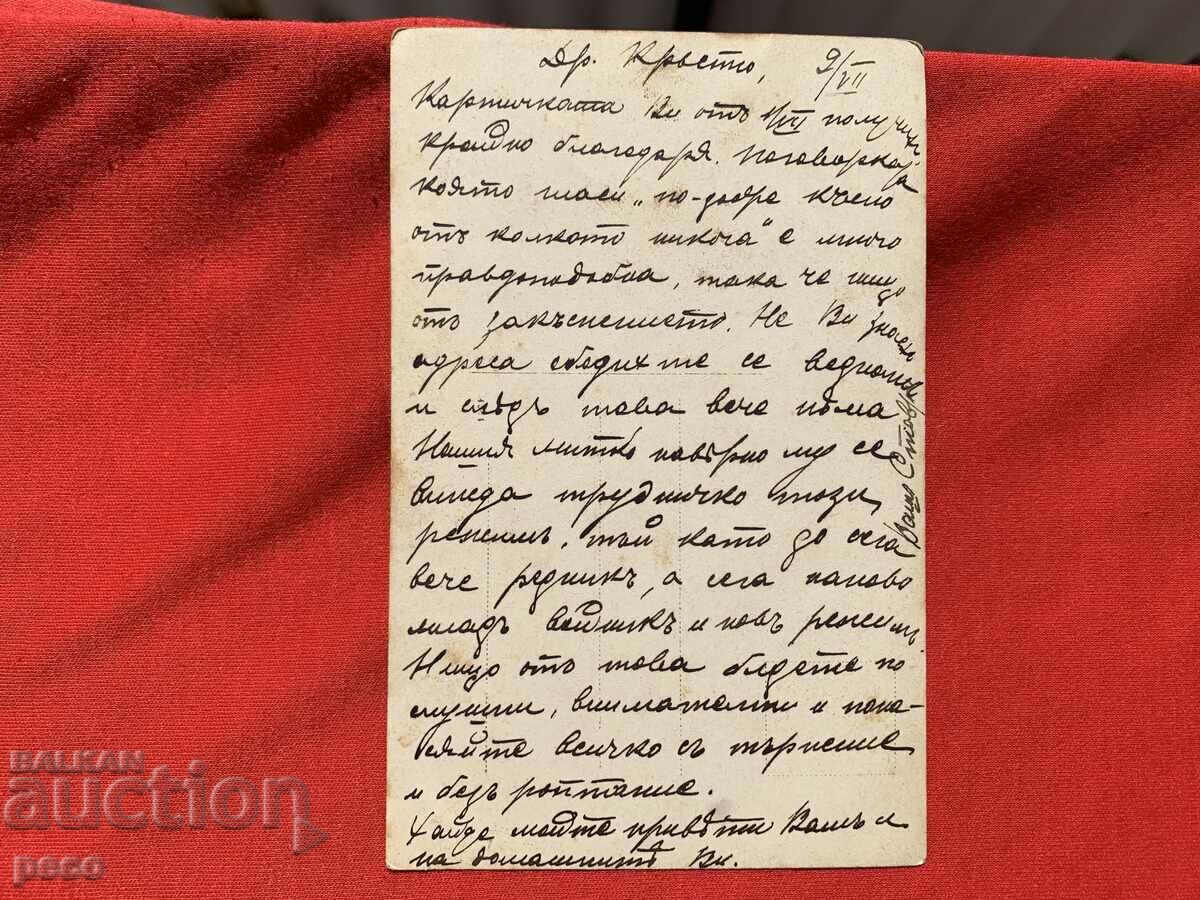 Др. Кръстю, 9/VII
Картичката Ви отъ 1/VII получихъ
крайно благодаря. Поговорката
която гласи „по-добре късно
отъ колкото никога" е много
правдоподобна, така че нищо
отъ закъснението. Не Ви зная
адреса обадихте се веднъжъ
и следъ това вече нѣма
Нашия Митко навѣрно му се
вижда трудничко този
режимъ, тъй като до сега
вече редникъ, а сега наново
младъ войникъ и новъ режимъ.
Нищо отъ това бѫдете по
слушни, внимателни и пона-
сяйте всичко съ търпение
и безъ роптание.
Хайде моите привѣти Вамъ и
на домашнитѣ Ви.
Ваше
BALKAN
auction
peco